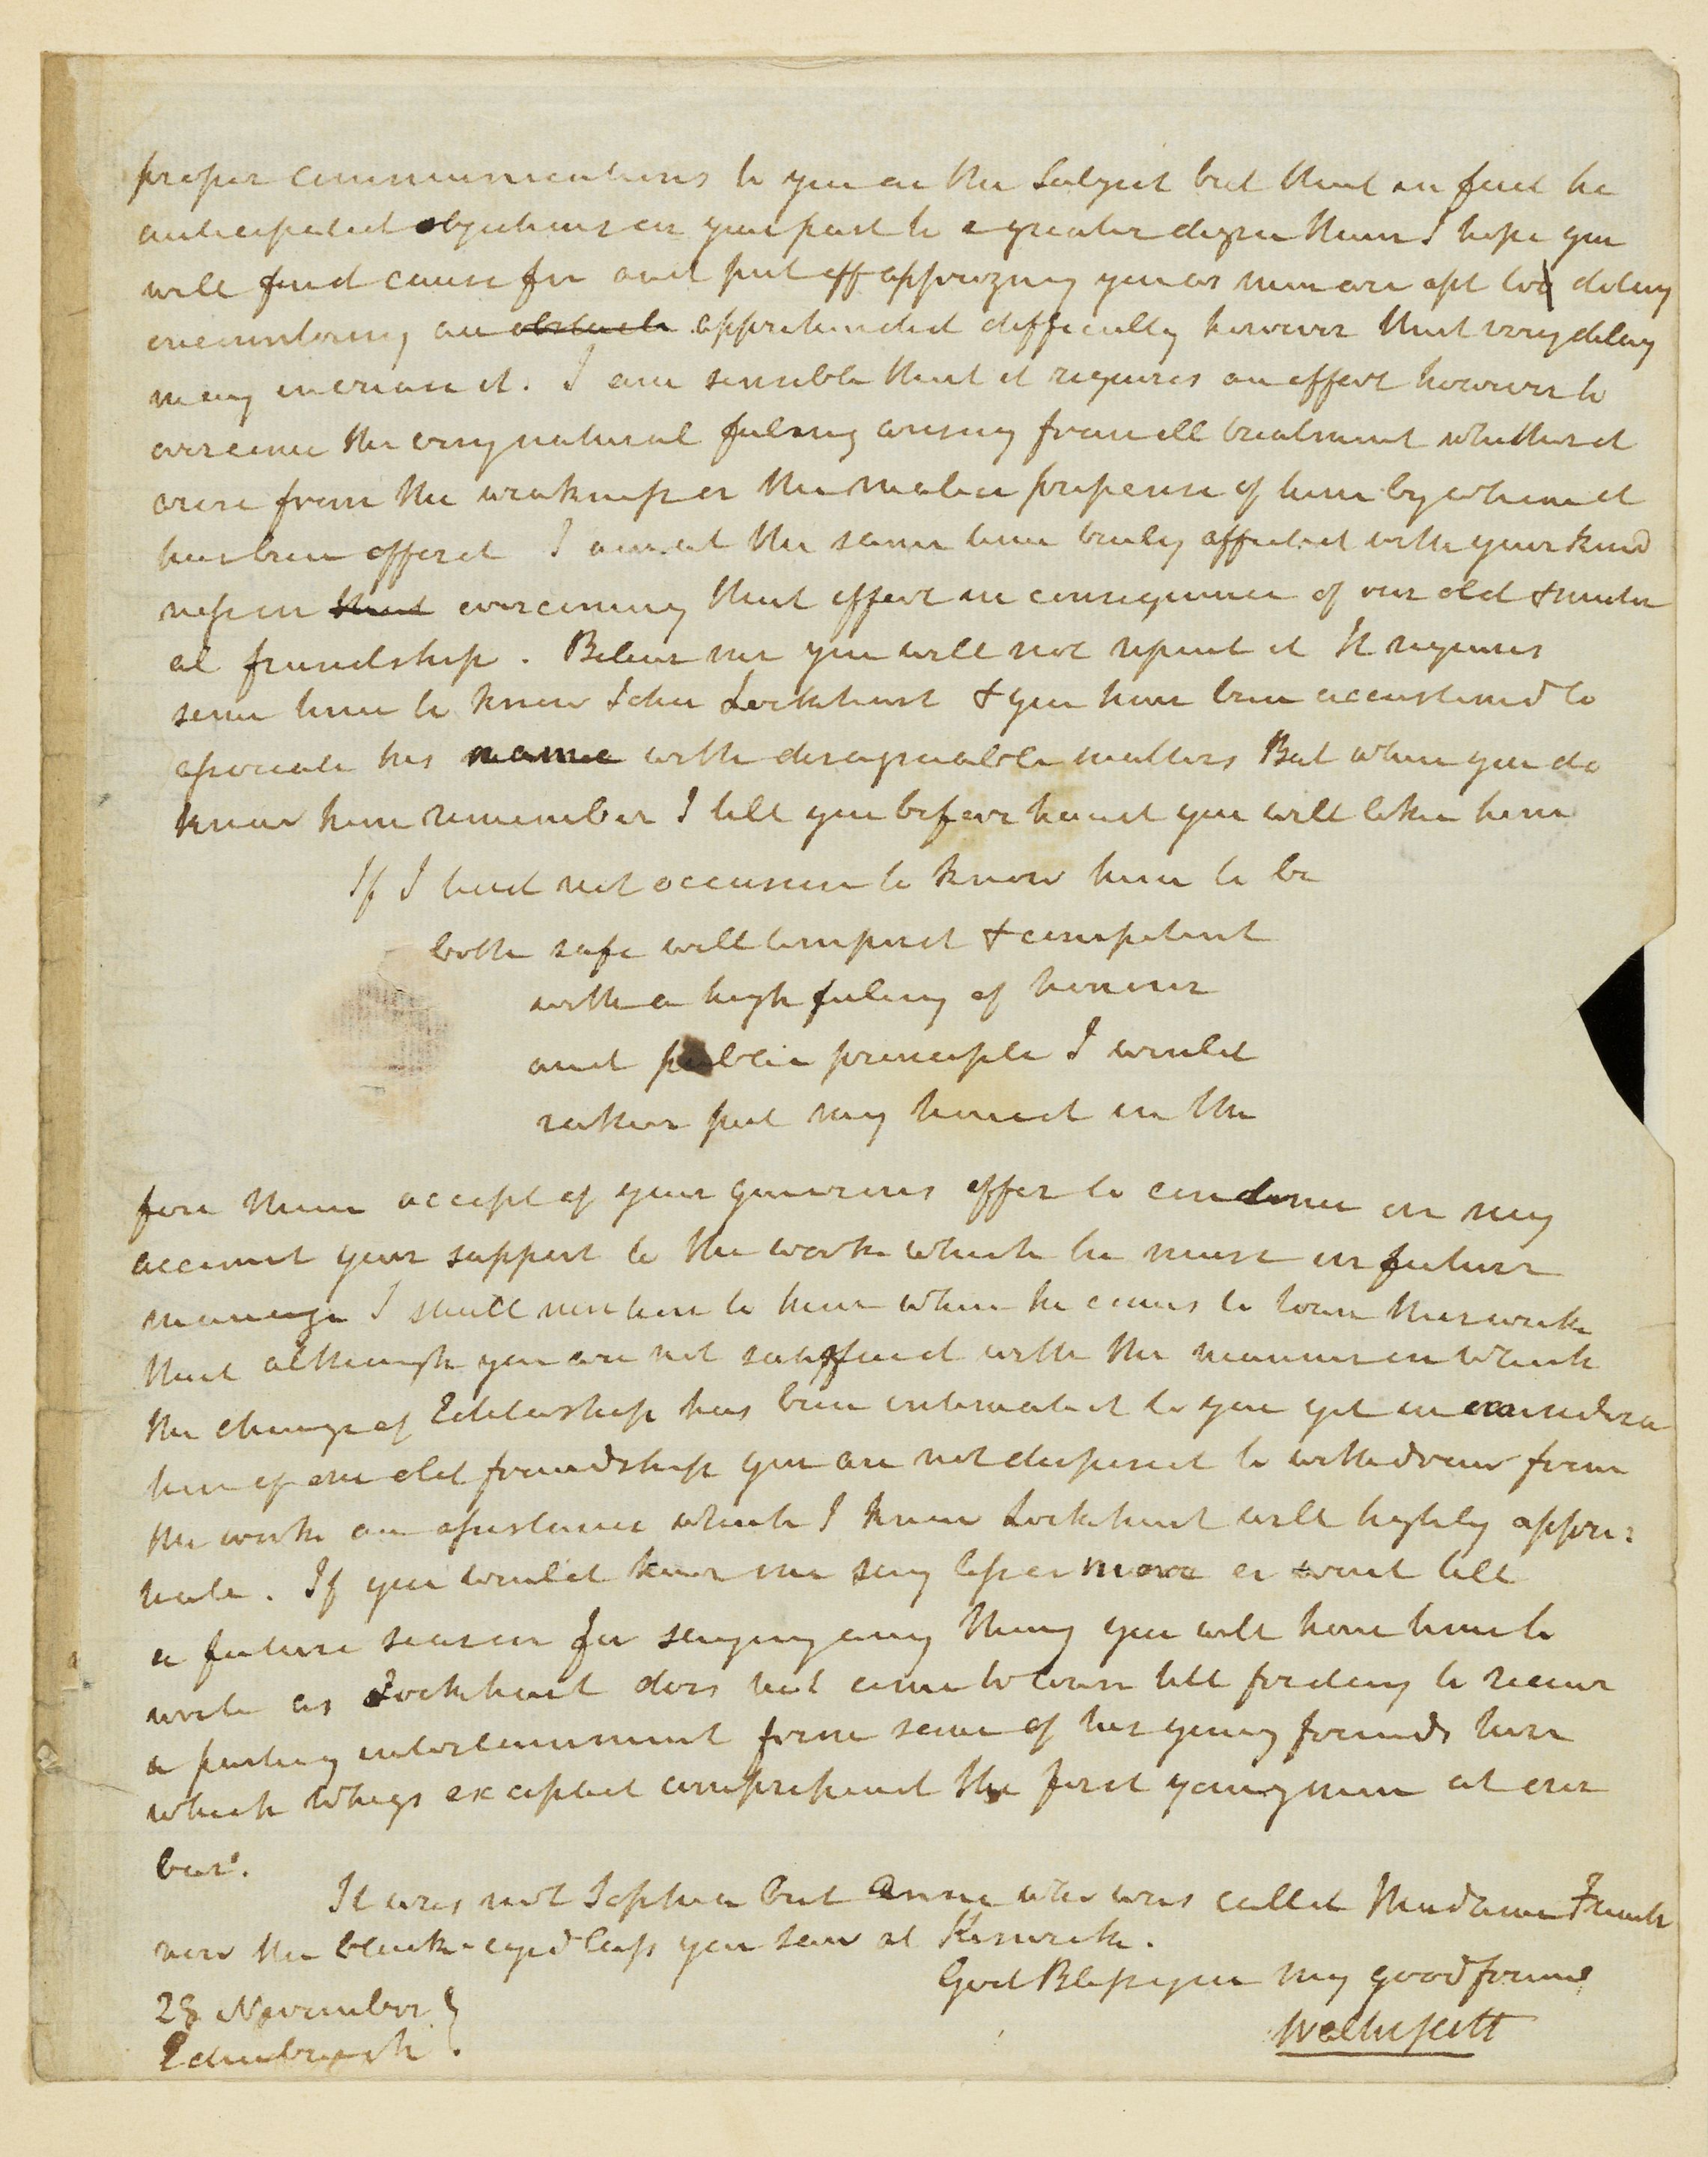 proper communications to you on the subject but that in fact he
anticipated objections on your part to a greater degree than I hope you
will find cause for and put off apprizing you as men are apt to delay
encountering an obstacle apprehended difficulty however that very delay
may increase it. I am sensible that it requires an effort however to
overcome the very natural feeling arising from ill treatment whether it
arise from the weakness or the malice prepense of him by whom it
has been offerd I am at the same time truly affected with your kind
ness in that overcoming that effort in consequence of our old & mutu
al friendship. Believe me you will not repent it It requires
some time to know John Lockhart & you have been accustomd to
associate his name with disagreeable matters But when you do
know him remember I tell you before hand you will like him
If I had not occasion to know him to be
both safe well temperd & competent
with a high feeling of honour
and public principle I would
rather put my hand in the
fire than accept of your generous offer to continue on my
account your support to the work which he must in future
manage I shall mention to him when he comes to town this week
that although you are not satisfied with the manner in which
the change of Editorship has been intimated to you yet in considera
tion of our old friendship you are not disposed to withdraw from
the work an assistance which I know Lockhart will highly appre:
ciate. If you would have me say less or more or wait till
a future season for saying any thing you will have time to
write as Lockhart does not come to town till friday to receive
a parting entertainment from some of his young friends here
which Whigs excepted comprehend the first young men at our
bar.
It was not Sophia but Anne who was called Madame
nor the black-eyed lass you saw at Keswick.
God Bless you my good friend
28 November
Edinburgh
Walter Scott